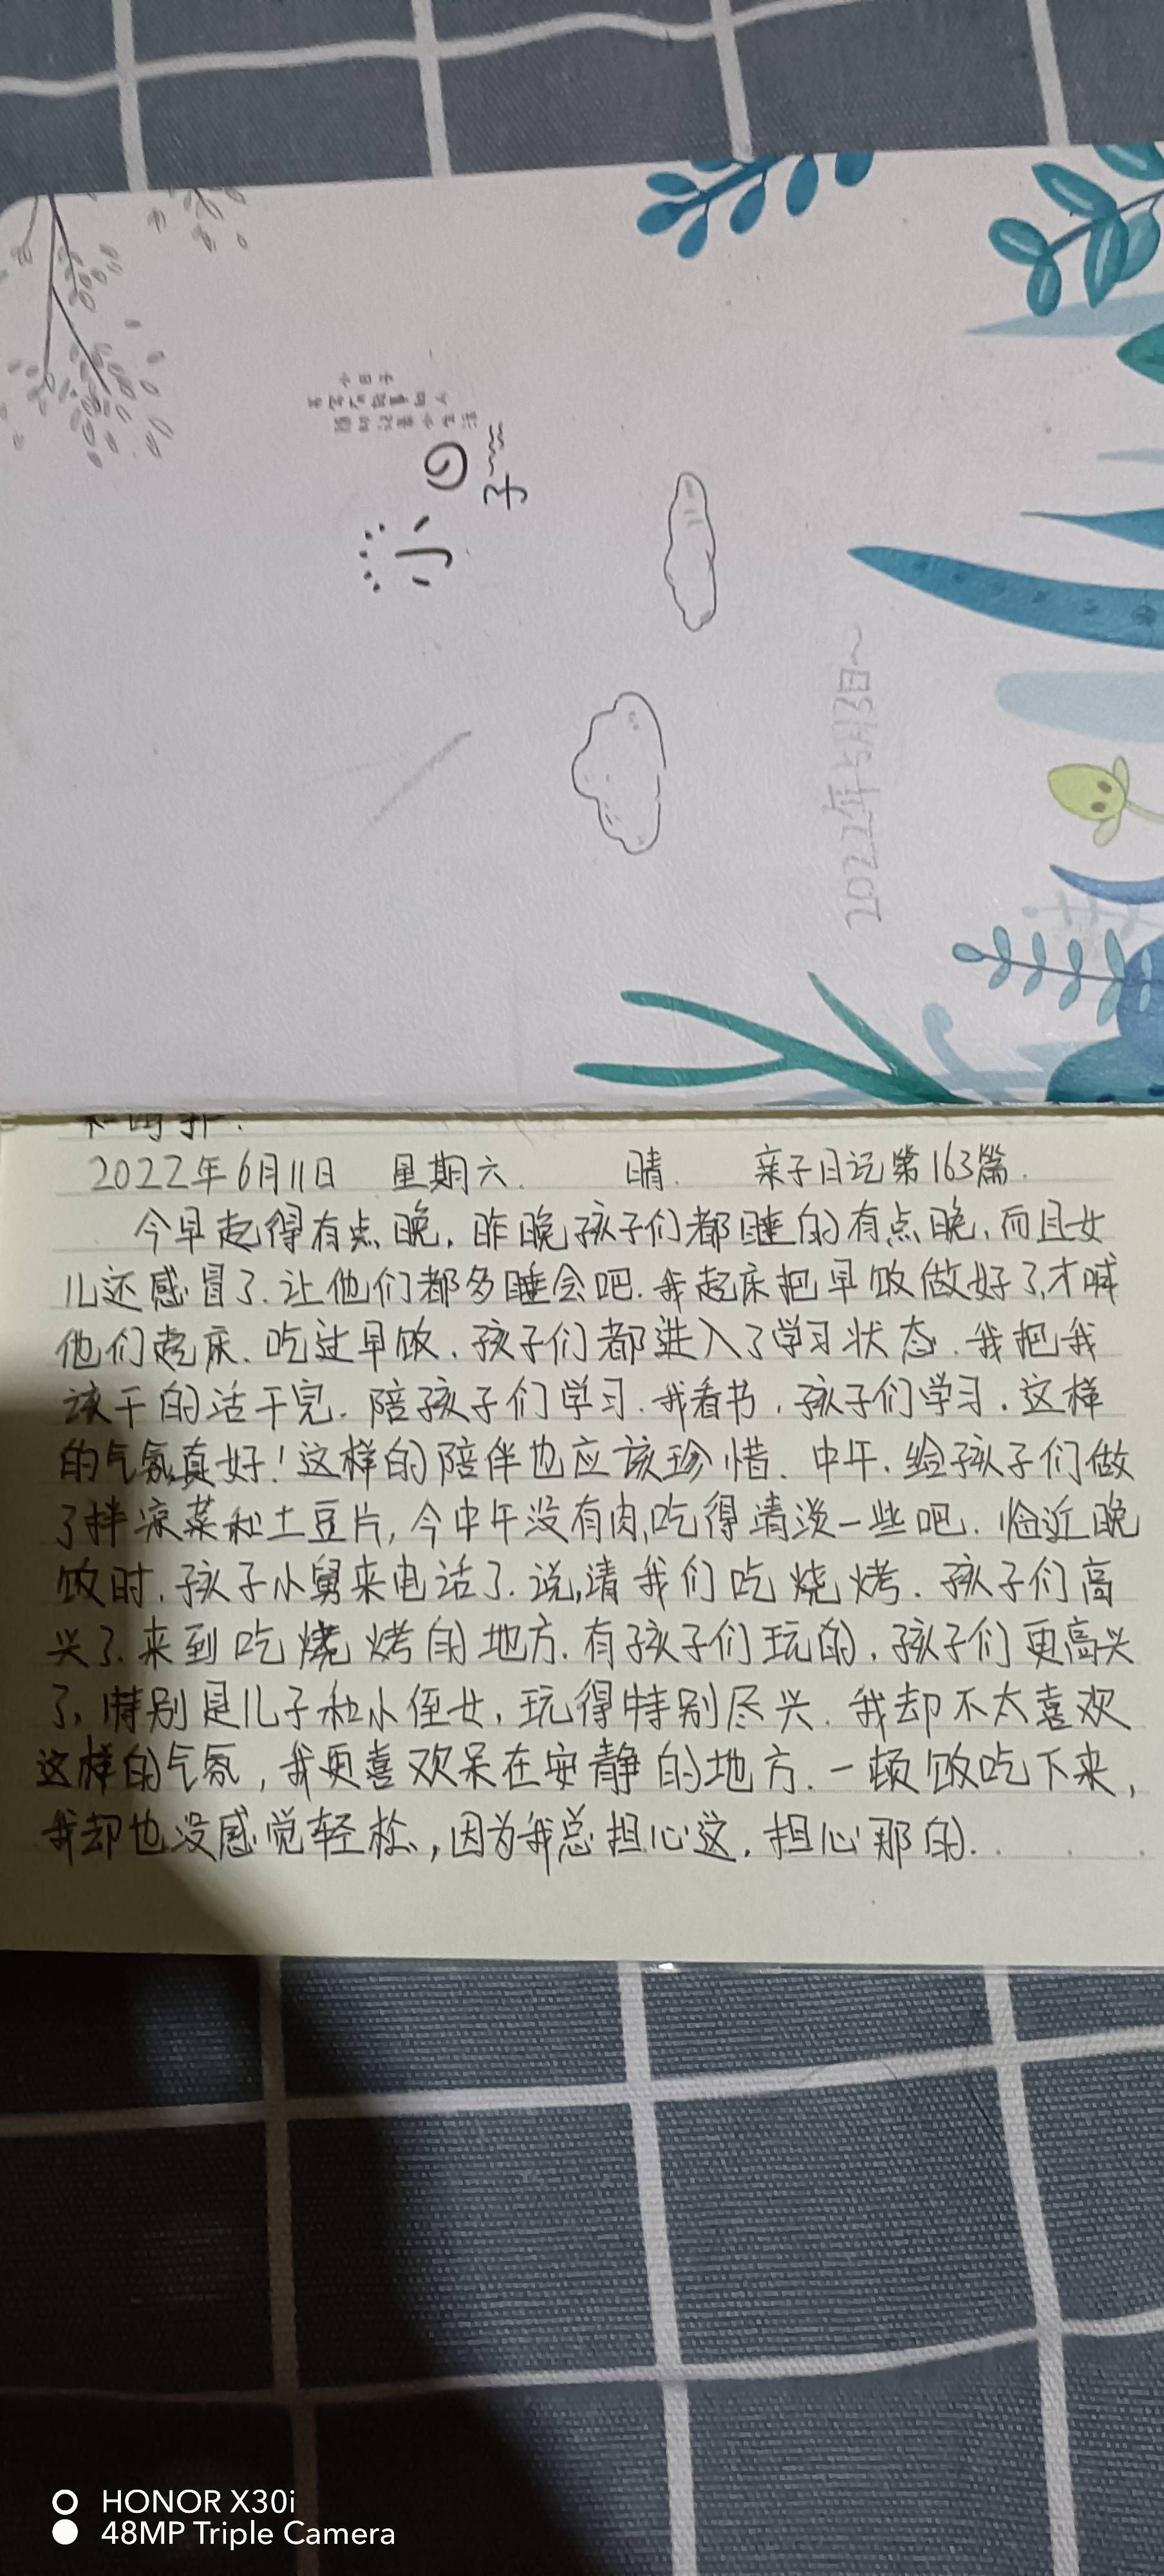 小日子
小日子
2022年5月3日~
2022年6月11日 星期六. 晴. 亲子日记第163篇.
今早起得有点晚,昨晚孩子们都睡的有点晚,而且女
儿还感冒了.让他们都多睡会吧.我起床把早饭做好了,才喊
他们起床.吃过早饭,孩子们都进入了学习状态.我把我
该干的活干完.陪孩子们学习.我看书,孩子们学习.这样
的气氛真好!这样的陪伴也应该珍惜.中午,给孩子们做
了拌凉菜和土豆片,今中午没有肉,吃得清淡一些吧.临近晚
饭时,孩子小舅来电话了.说,请我们吃烧烤.孩子们高
兴了.来到吃烧烤的地方.有孩子们玩的,孩子们更高兴
了,特别是儿子和小侄女,玩得特别尽兴.我却不太喜欢
这样的气氛,我更喜欢呆在安静的地方.一顿饭吃下来,
我却也没感觉轻松,因为我总担心这,担心那的...
HONOR X30i
48MP Triple Camera